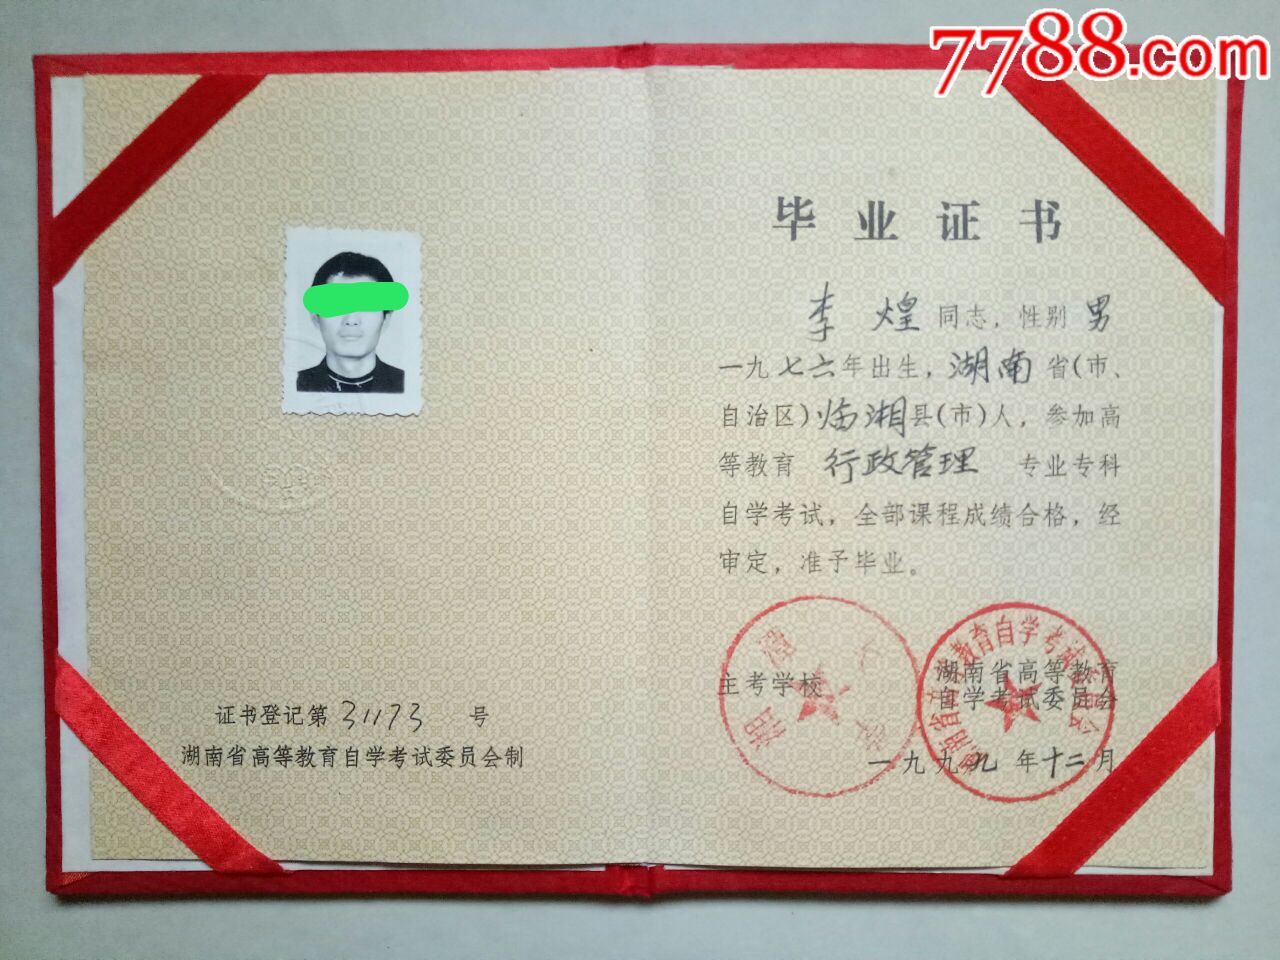 7788.com
毕业证书
李煌同志，性别男
一九七六年出生，湖南省(市、
自治区)临湘县(市)人，参加高
等教育 行政管理 专业专科
自学考试，全部课程成绩合格，经
审定，准予毕业。
主考学校
湘潭大学
湖南省高等教育
自学考试委员会
湖南省高等教育自学考试委员会
一九九九年十二月
证书登记第31173号
湖南省高等教育自学考试委员会制